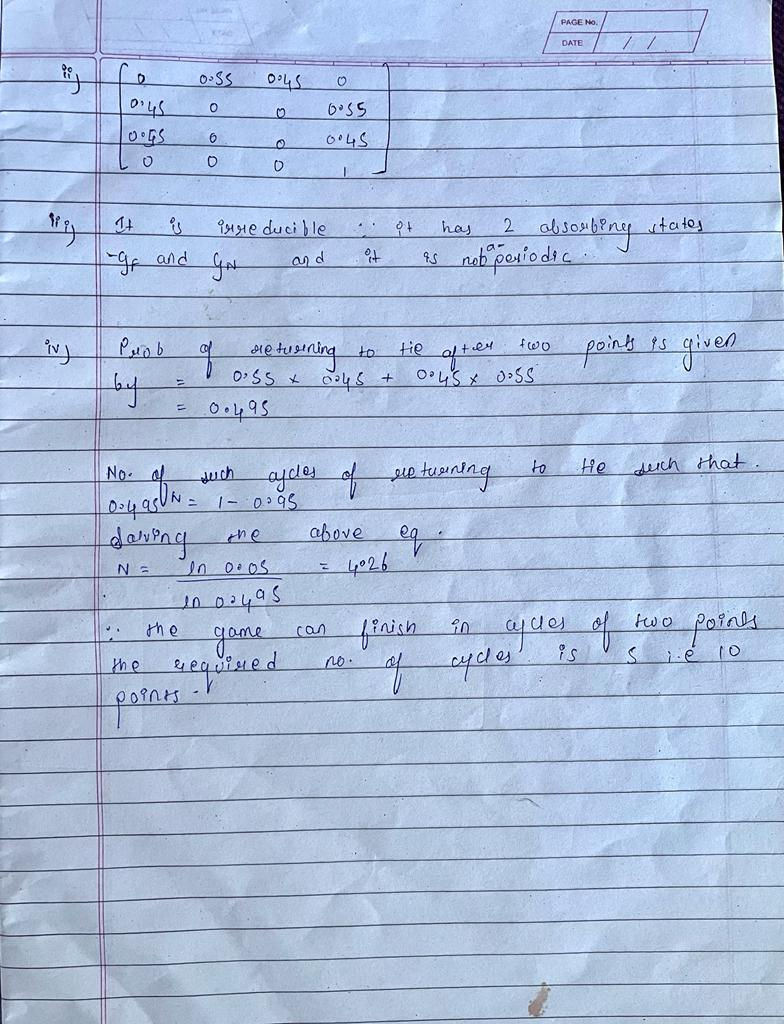 PAGE No.
DATE / /
ii)
0 0.55 0.45 0
0.45 0 0 0.55
0.55 0 0 0.45
0 0 0 1
iii) It is irreducible ∵ it has 2 absorbing states
-GF and GN and it is not a-periodic.
iv) Prob of returning to tie after two points is given
by = 0.55 x 0.45 + 0.45 x 0.55
= 0.495
No. of such cycles of returning to tie such that.
0.495^N = 1 - 0.95
Solving the above eq.
N = ln 0.05 = 4.26
ln 0.495
∴ the game can finish in cycles of two points
the required no. of cycles is 5 i.e 10
points-